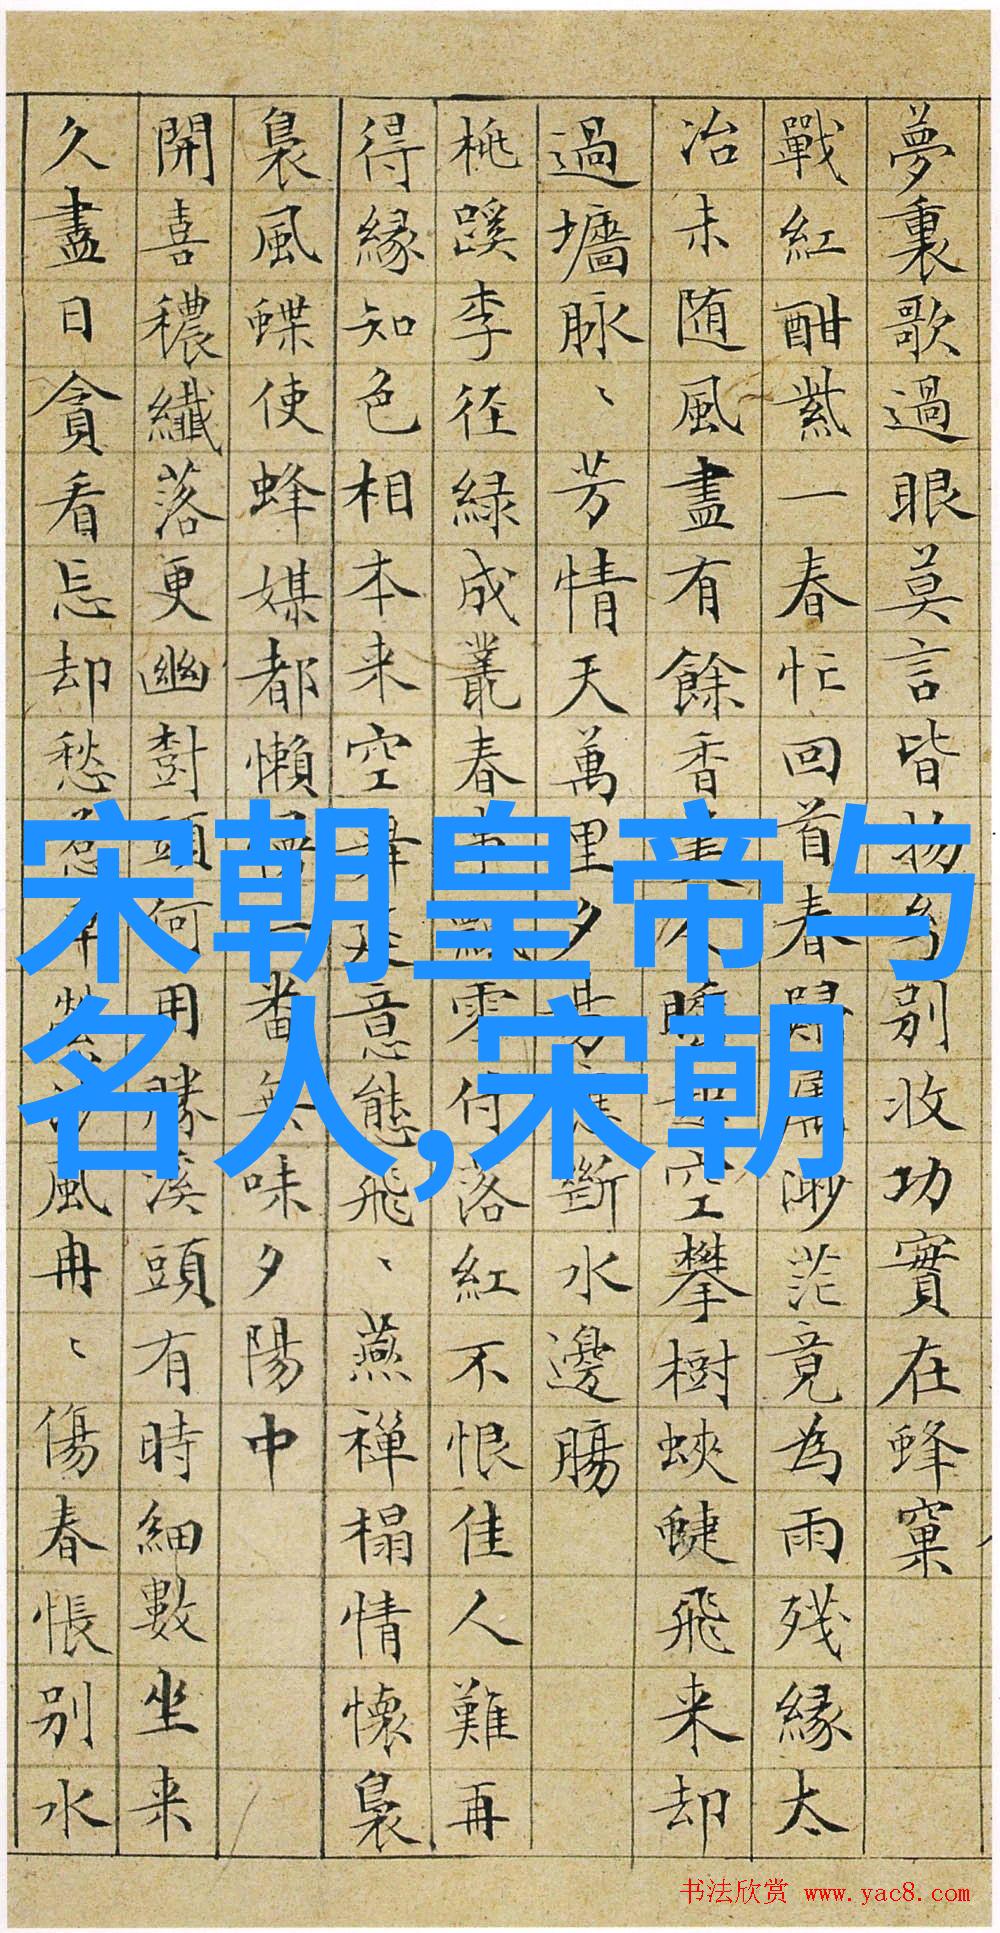 夢裏歌過眼莫言皆物别收功實在蜂窠
戰紅酣紫一春忙回首春歸屬渺茫竟為雨残緣太
冶未随風盡有餘香美人空攀樹蛺蝶飛来却
過墻脉、芳情天萬里夕陽應斷水邊腸
桃蹊李径緑成叢春事飄零付落紅不恨佳人難再
得緣知色相本来空舞意態飛、燕禅榻情懷裊
裊風蝶使蜂媒都懶一番無味夕陽中
開喜穠纖落更幽樹頭何用勝溪頭有時細數坐来
久盡日貪看忘却愁惹草縈沙風冉、傷春悵别水
宋朝皇帝与
名人,宋朝
书法欣赏 www.yac8.com